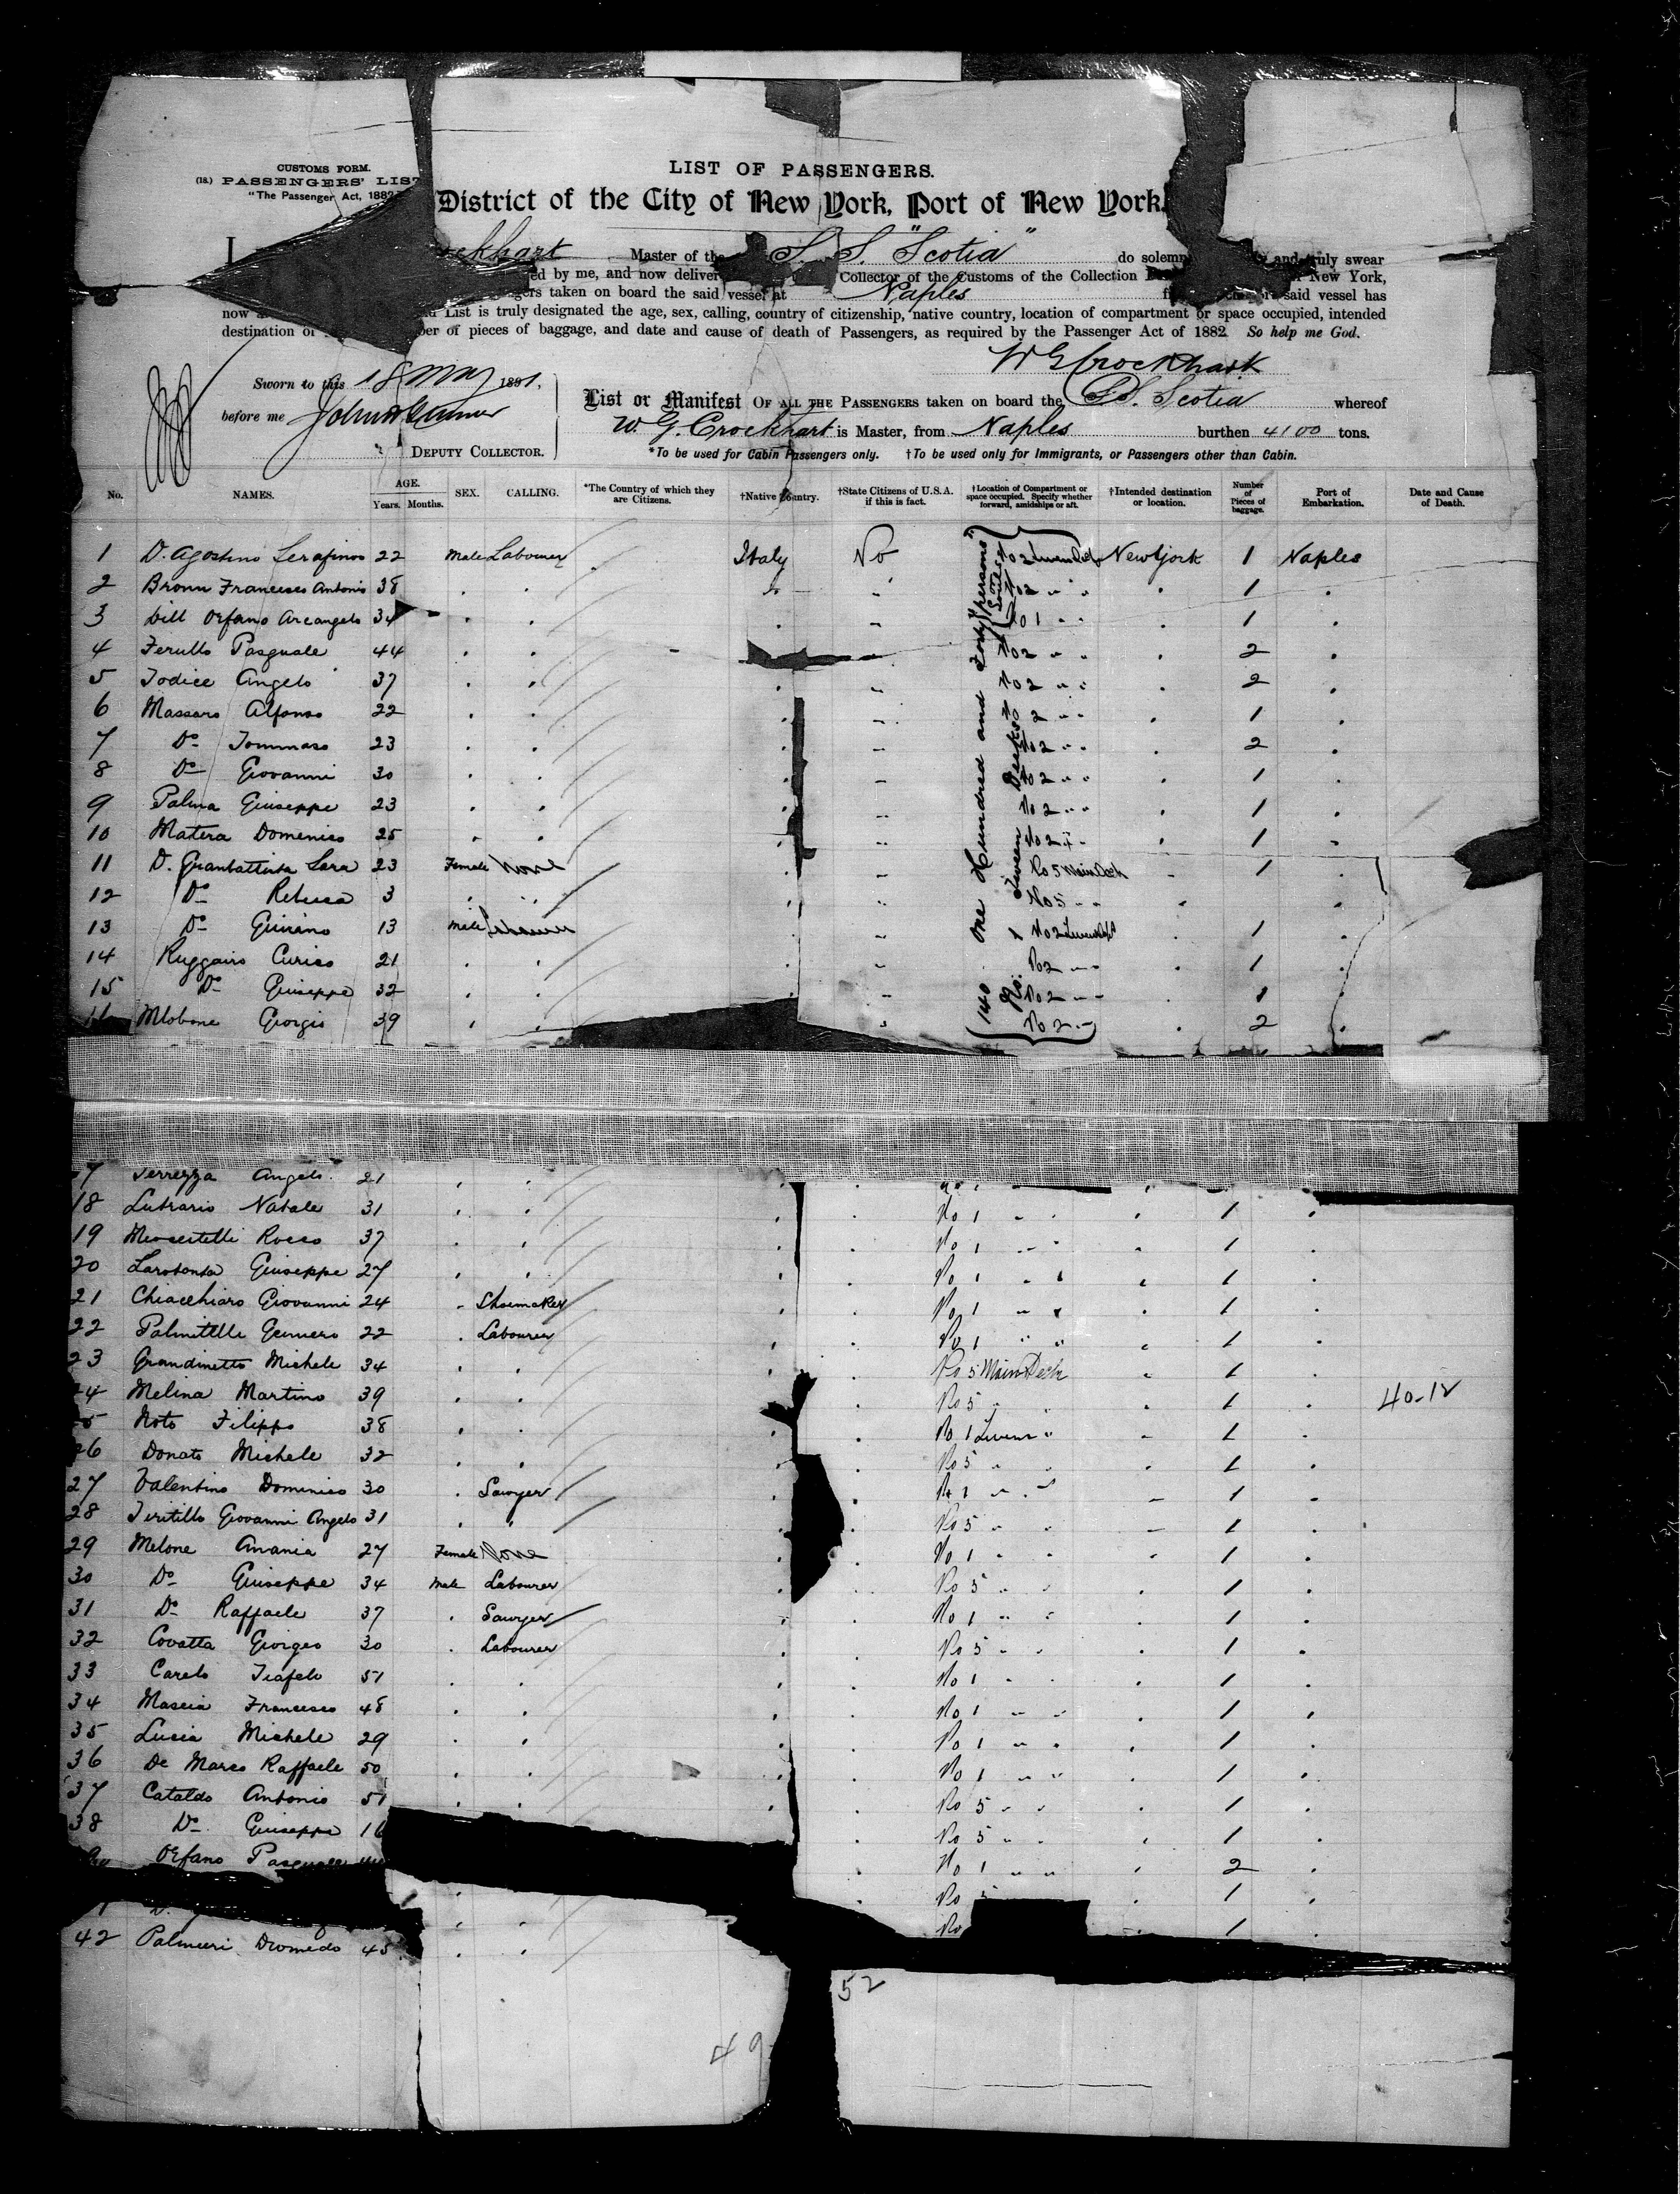 CUSTOMS FORM.
(18.) PASSENGERS' LIST
"The Passenger Act, 1882
LIST OF PASSENGERS.
District of the City of New York, Port of New York.
I ockhart Master of the S. S. "Scotia" do solemn and truly swear
ed by me, and now deliver Collector of the Customs of the Collection New York,
gers taken on board the said vessel at Naples said vessel has
now List is truly designated the age, sex, calling, country of citizenship, native country, location of compartment or space occupied, intended
destination or ber of pieces of baggage, and date and cause of death of Passengers, as required by the Passenger Act of 1882. So help me God.
W G Crockhart
Sworn to this 18 May 1891,
before me
DEPUTY COLLECTOR.
List or Manifest OF ALL THE PASSENGERS taken on board the S.S. Scotia whereof
W. G. Crockhart is Master, from Naples burthen 4100 tons.
*To be used for Cabin Passengers only. †To be used only for Immigrants, or Passengers other than Cabin.
No. NAMES. AGE. Years. Months. SEX. CALLING. *The Country of which they are Citizens. †Native Country. †State Citizens of U.S.A. if this is fact. †Location of Compartment or space occupied. Specify whether forward, amidships or aft. †Intended destination or location. Number of Pieces of baggage. Port of Embarkation. Date and Cause of Death.
140 One Hundred and Forty "persons"
1 D. Agostino Serafino 22 Male Labourer Italy No No 2 New York 1 Naples
2 Francesco Antonio 38 No 2 " " 1
3 Dill Orfano Arcangelo 34 No 1 " " 1
4 Ferullo Pasquale 44 No 2 " " 2
5 Iodice Angelo 37 No 2 " " 2
6 Massaro Alfonso 22 No 2 " " 1
7 Do Tommaso 23 No 2 " " 2
8 Do Giovanni 30 No 2 " " 1
9 Palma Giuseppe 23 No 2 " " 1
10 Matera Domenico 25 No 2 " " 1
11 D. Gianbattista Sara 23 Female None No 5 Main Deck 1
12 Do Rebecca 3 No 5 " "
13 Do 13 Male Labourer No 2 1
14 21 No 2 " " 1
15 Do Giuseppe 32 No 2 " " 1
Giorgio 39 No 2 " 2
7 Terrezza Angelo 21
18 Lutrario Natale 31 No 1 " " 1
19 Rocco 37 No 1 " " 1
20 Larotonta Giuseppe 27 No 1 " " 1
21 Chiacchiaro Giovanni 24 Shoemaker No 1 " " 1
22 22 Labourer No 1 " " 1
23 Grandinetto Michele 34 No 5 Main Deck 1
24 Melina Martino 39 No 5 " 1 40-12
5 Noto Filippo 38 No 1 " 1
26 Donato Michele 32 No 5 " 1
27 Valentino Domenico 30 Sawyer No 1 " " 1
28 Giovanni Angelo 31 No 5 " " 1
29 Melone Anania 27 Female None No 1 " " 1
30 Do Giuseppe 34 Male Labourer No 5 " " 1
31 Do Raffaele 37 Sawyer No 1 " " 1
32 Covatta 30 Labourer No 5 " " 1
33 51 No 1 " " 1
34 Mascia Francesco 48 No 1 " " 1
35 Lucia Michele 29 No 1 " " 1
36 De Marco Raffaele 50 No 1 " " 1
37 Cataldo Antonio 51 No 5 " " 1
38 Do Giuseppe 16 No 5 " " 1
Orfano Pasquale No 1 " " 2
No 5 1
1 D. No 1
42 Palmieri Diomedo 45
52
49